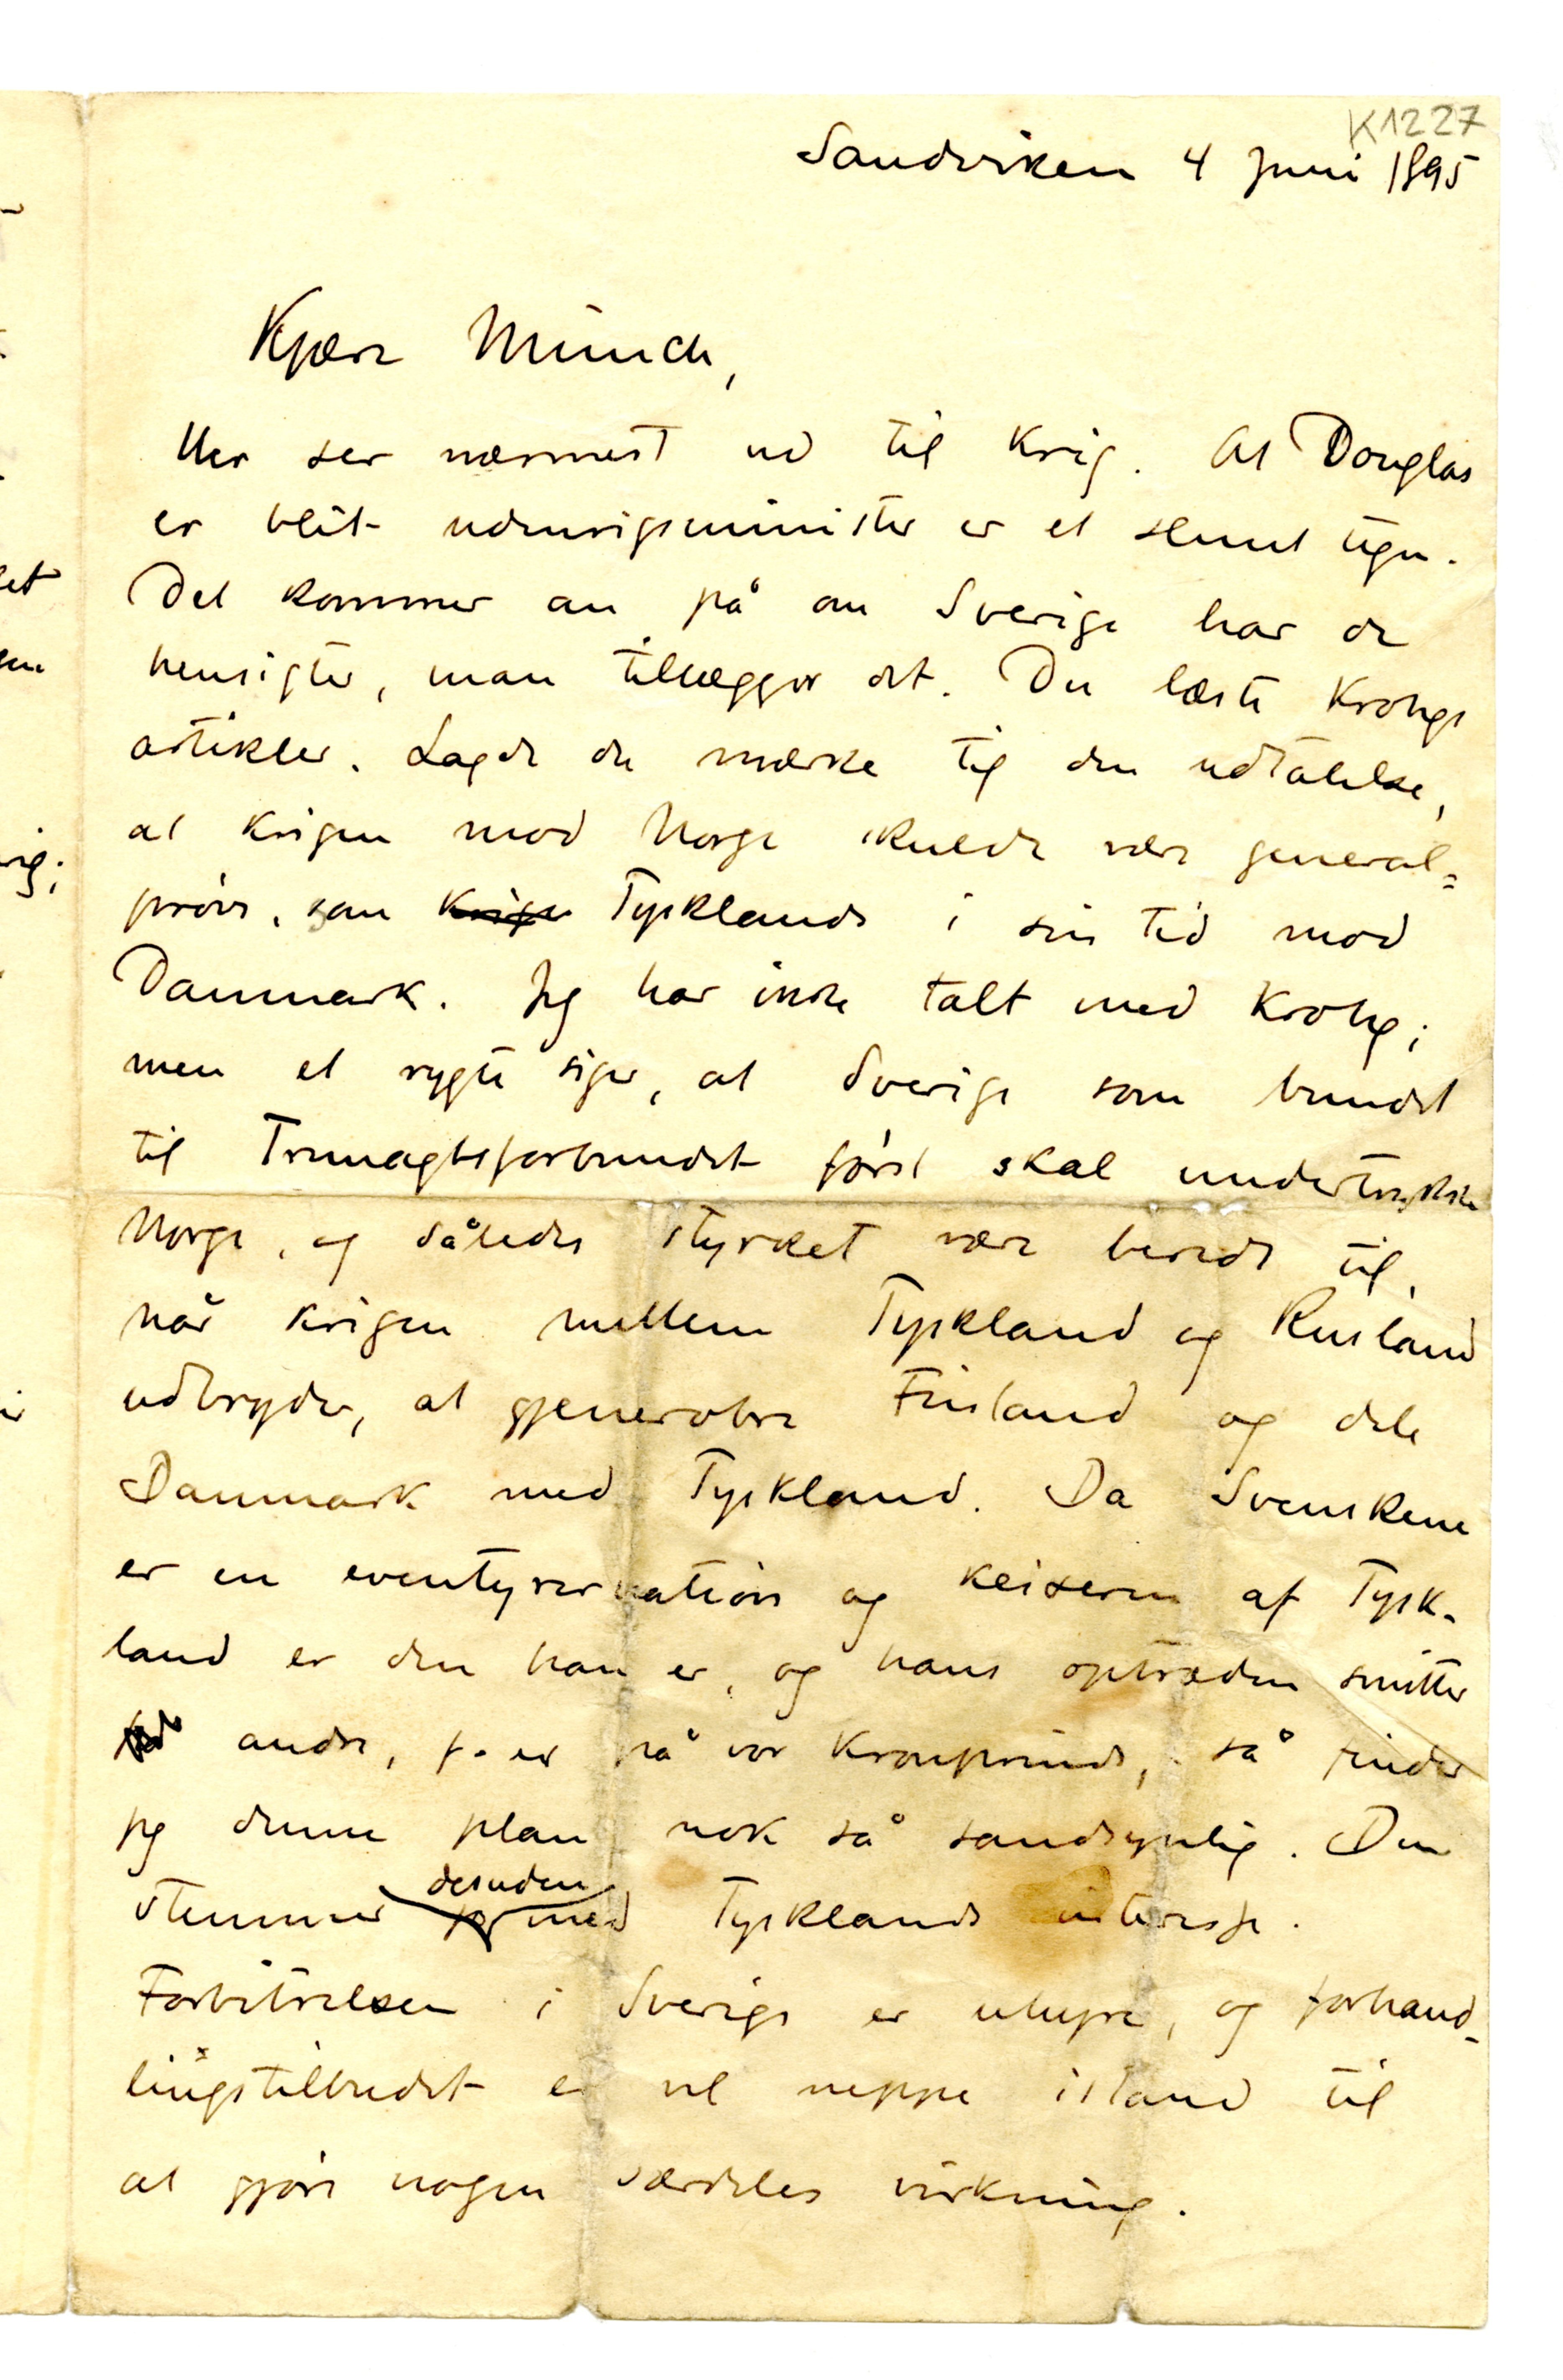 K1227
Sandviken 4 Juni 1895
Kjære Munch,
Her ser nærmest ud til krig. At Douglas
er blit udenrigsminister er et slemt tegn.
Det kommer an på om Sverige har de
hensigter, man tillægger det. Du læste Krohgs
artikler. Lagde du mærke til den udtalelse,
at krigen mod Norge skulde være general=
prøve, som krige Tysklands i sin tid mod
Danmark. Jeg har ikke talt med Krohg;
men et rygte siger, at Sverige som bundet
til Tremagtsforbundet først skal undertrykke
Norge, og således styrket være beredt til,
når krigen mellem Tyskland og Rusland
udbryder, at gjenerobre Finland og dele
Danmark med Tyskland. Da Svenskene
er en eventyrernation og keiseren af Tysk-
land er den han er, og hans optræden smitter
på andre, f. ex på vor Kronprinds, så finder
jeg denne plan nok så sandsynlig. Den
stemmer desuden med Tysklands interesse.
Forbitrelsen i Sverige er uhyre, og forhand-
lingstilbudet er vel neppe istand til
at gjøre nogen særdeles virkning.
et
rig;